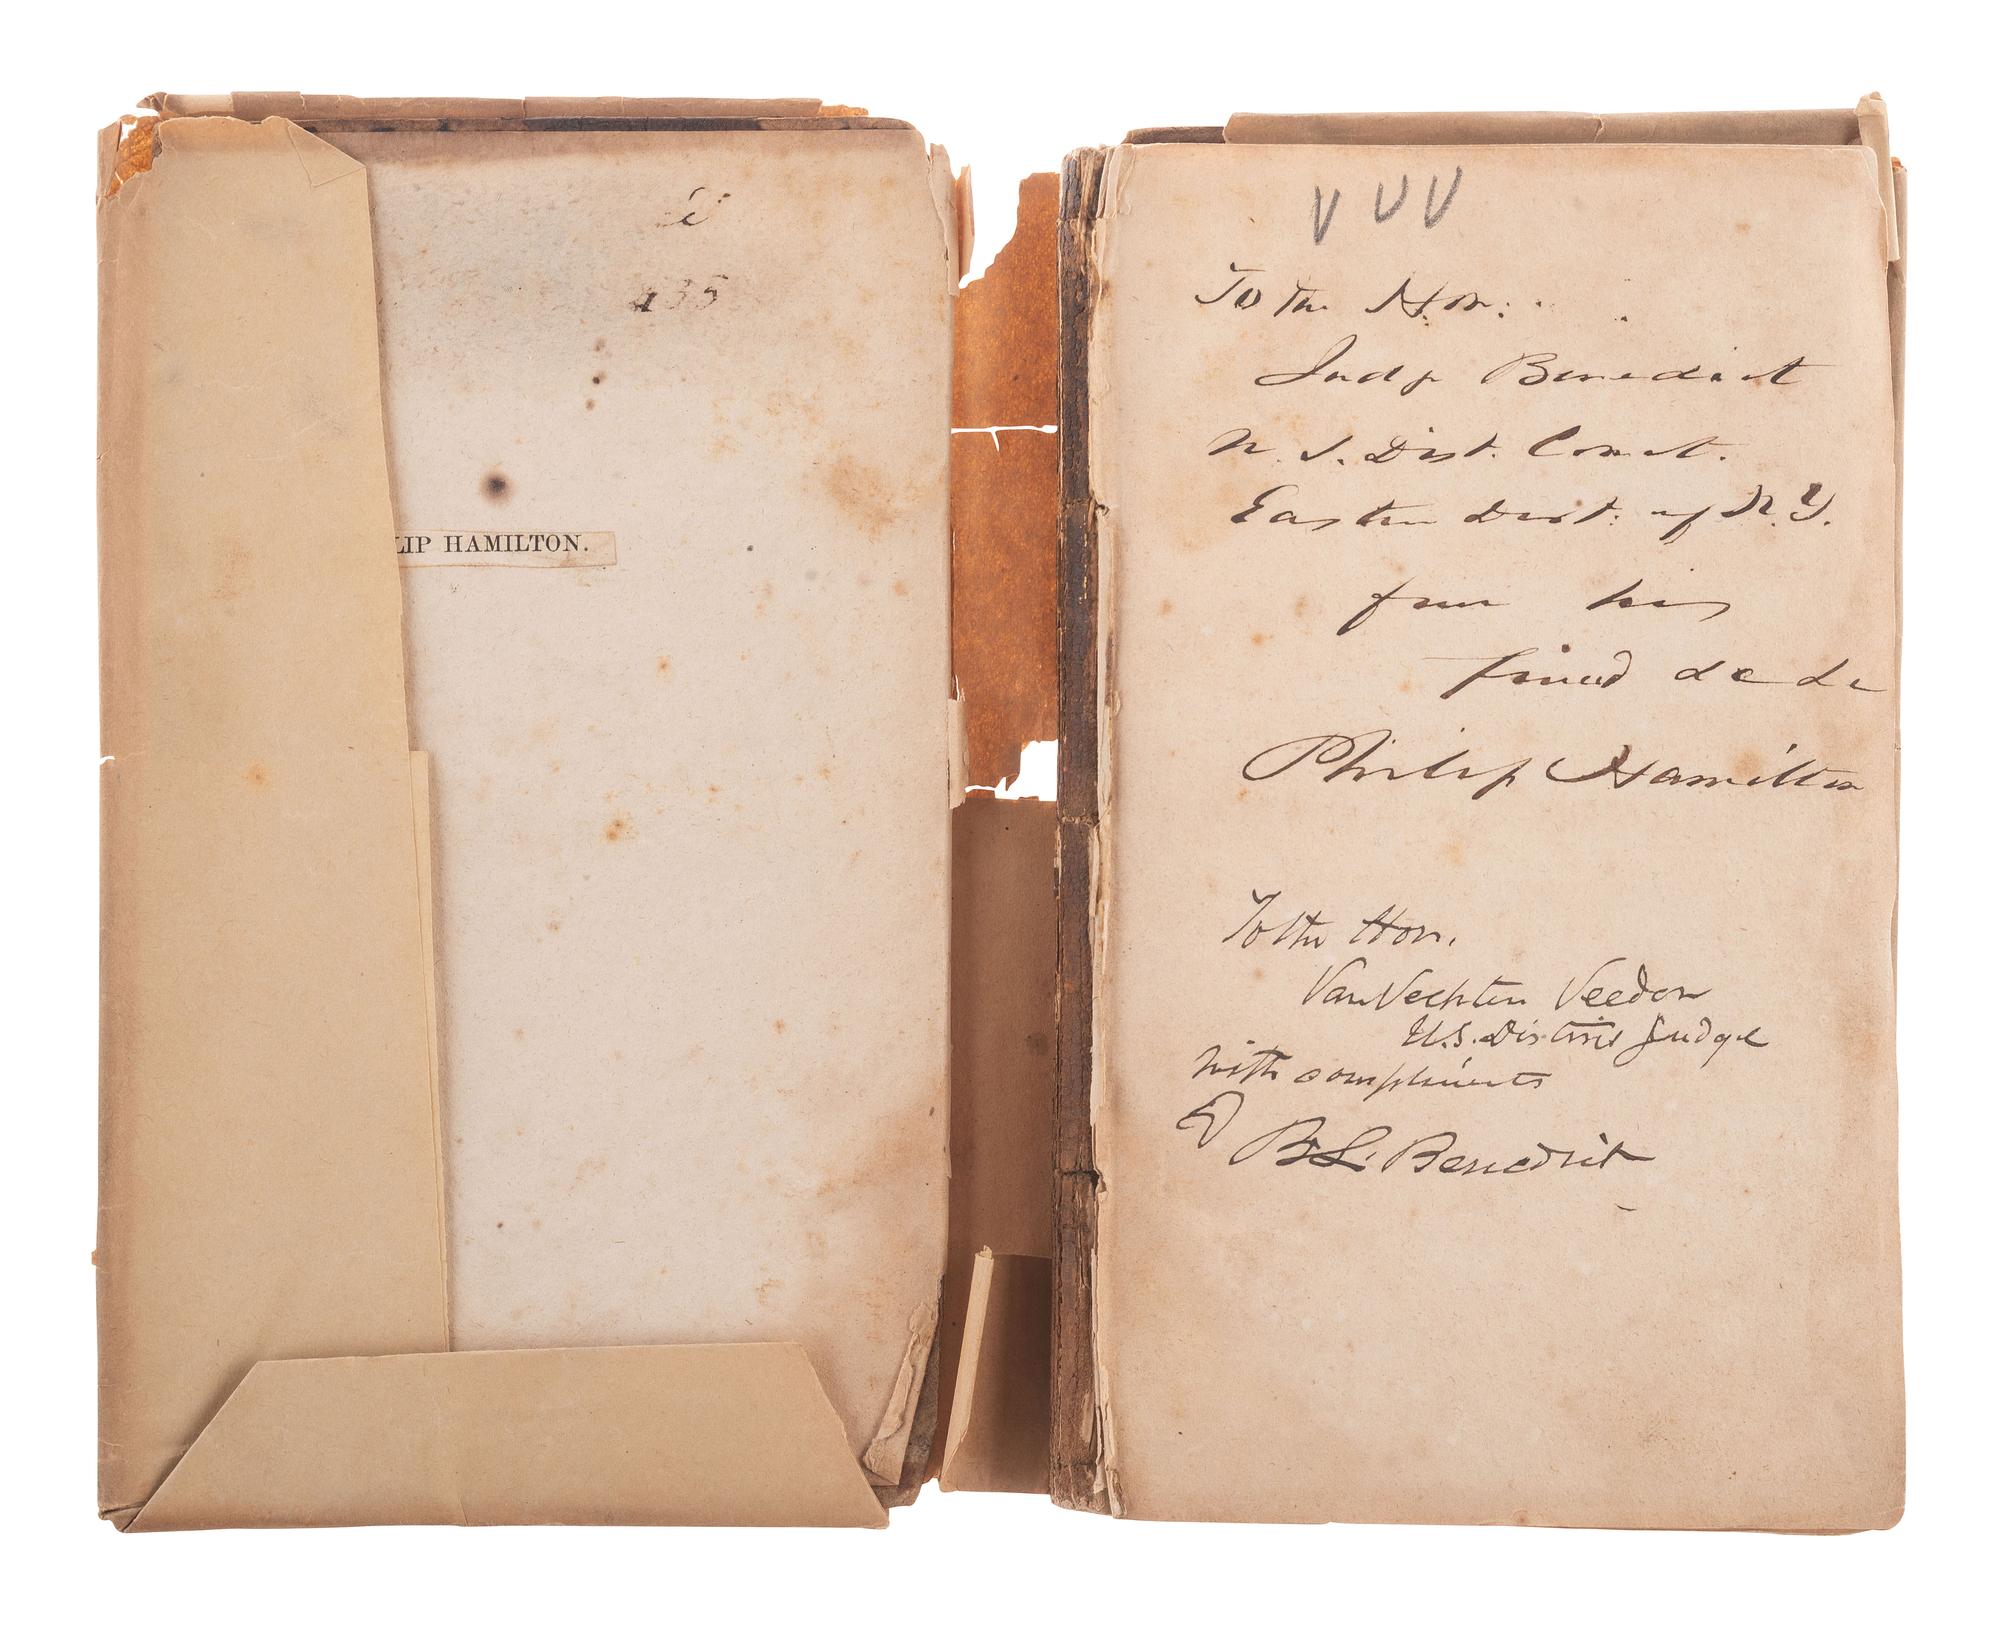 435
LIP HAMILTON.
V V V
To the Hon:
Judge Benedict
U. S. Dist. Court.
Eastern Dist: of N. Y.
from his
friend &c &c
Philip Hamilton
To the Hon.
Van Vechten Veeder
U.S. District Judge
with compliments
B L. Benedict